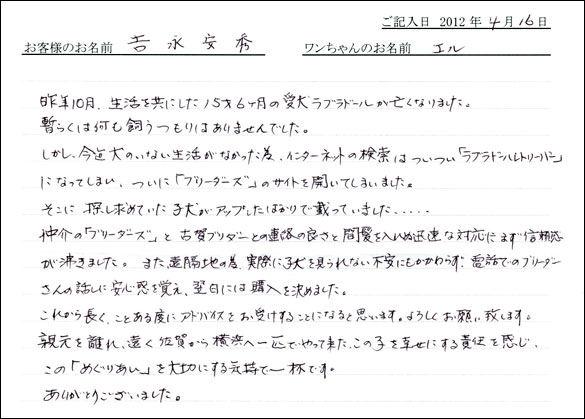 ご記入日 2012年4月16日
お客様のお名前 吉永安秀 ワンちゃんのお名前 エル
昨年10月、生活を共にした15才6ヶ月の愛犬ラブラドールが亡くなりました。
暫らくは何も飼うつもりはありませんでした。
しかし、今迄犬のいない生活がなかった為、インターネットの検索はついつい「ラブラドールレトリーバー」
になってしまい、ついに「ブリーダーズ」のサイトを開いてしまいました。
そこに探し求めていた子犬がアップしたばかりで載っていました.....
仲介の「ブリーダーズ」と古賀ブリーダーとの連絡の良さと間髪を入れぬ迅速な対応にまず信頼感
が沸きました。また、遠隔地の為、実際に子犬を見られない不安にもかかわらず、電話でのブリーダー
さんの話しに安心感を覚え、翌日には購入を決めました。
これから長く、ことある度にアドバイスをお受けすることになると思います。よろしくお願い致します。
親元を離れ、遠く佐賀から横浜へ一匹でやって来た、この子を幸せにする責任を感じ、
この「めぐりあい」を大切にする気持で一杯です。
ありがとうございました。